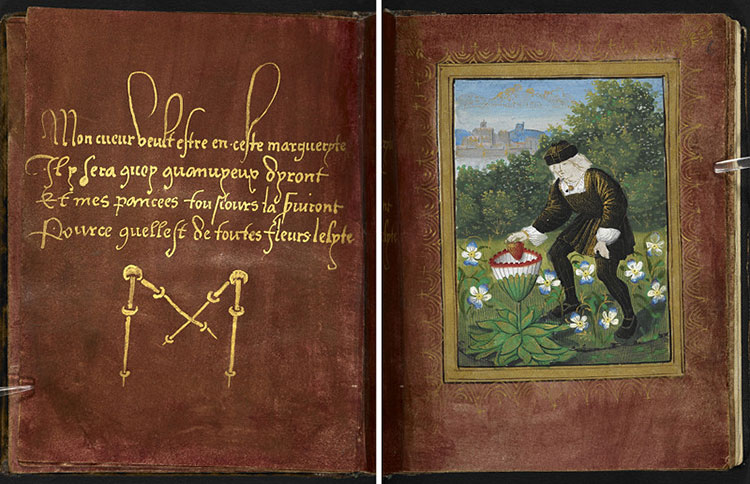 Mon cueur veult estre en ceste marguerpte
Il p sera quop quanvpeux dpront
Et mes pancees tousiours la suiuront
Pource quellest de toutes fleurs leslpte
M